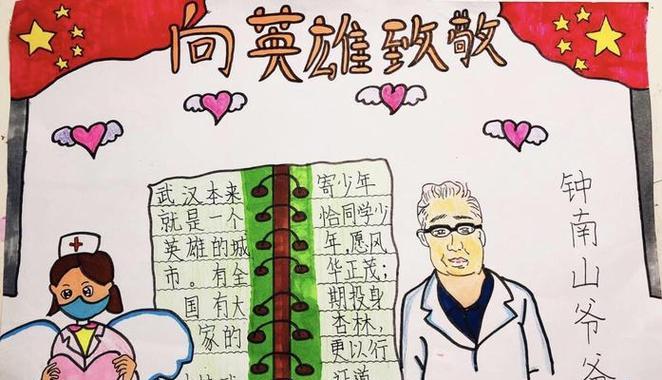 向英雄致敬
武汉本来
就是一个
英雄的城
市。有全
国有大
家的
寄少年
恰同学少
年,愿风
华正茂;
期投身
杏林,
更以行
钟南山爷爷